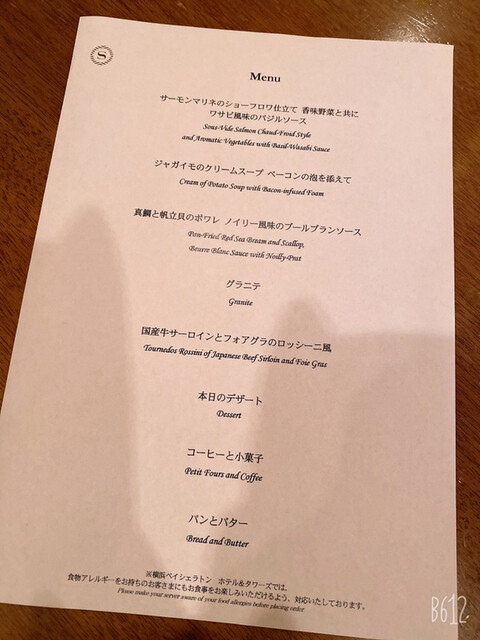 S
Menu
サーモンマリネのショーフロワ仕立て 香味野菜と共に
ワサビ風味のバジルソース
Sous-Vide Salmon Chaud-Froid Style
and Aromatic Vegetables with Basil-Wasabi Sauce
ジャガイモのクリームスープ ベーコンの泡を添えて
Cream of Potato Soup with Bacon-infused Foam
真鯛と帆立貝のポワレ ノイリー風味のブールブランソース
Pan-Fried Red Sea Bream and Scallop,
Beurre Blanc Sauce with Noilly-Prat
グラニテ
Granite
国産牛サーロインとフォアグラのロッシーニ風
Tournedos Rossini of Japanese Beef Sirloin and Foie Gras
本日のデザート
Dessert
コーヒーと小菓子
Petit Fours and Coffee
パンとバター
Bread and Butter
※横浜ベイシェラトン ホテル&タワーズでは、
食物アレルギーをお持ちのお客さまにもお食事をお楽しみいただけるよう、対応いたしております。
Please make your server aware of your food allergies before placing order.
B612